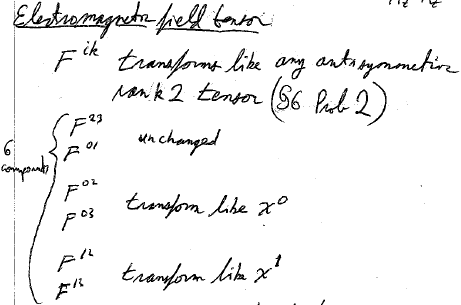 Electromagnetic field tensor
F^{ik} transforms like any antisymmetric
rank 2 tensor (§6 Prob 2)
6 components
F^{23}
F^{01} unchanged
F^{02}
F^{03} transform like x^0
F^{12}
F^{13} transform like x^1